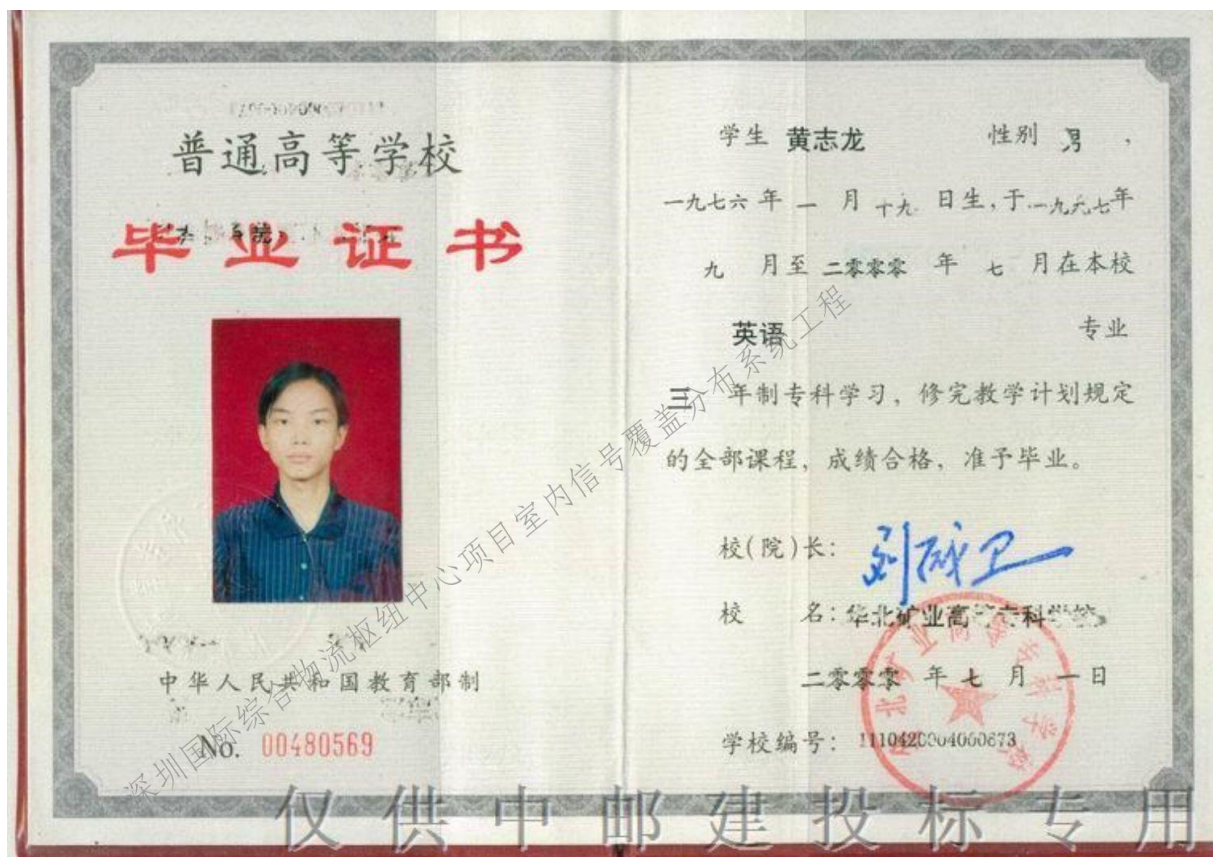 普通高等学校
毕业证书
中华人民共和国教育部制
No. 00480569
学生 黄志龙 性别 男,
一九七六年 一 月 十九 日生,于 一九九七年
九 月至 二零零零 年 七 月在本校
英语 专业
三 年制专科学习,修完教学计划规定
的全部课程,成绩合格,准予毕业。
校(院)长: 刘成卫
校 名: 华北矿业高等专科学校
二零零零 年 七 月 一日
学校编号: 1110420004000673
华北矿业高等专科学校
深圳国际综合物流枢纽中心项目室内信号覆盖分布系统工程
仅供中邮建投标专用